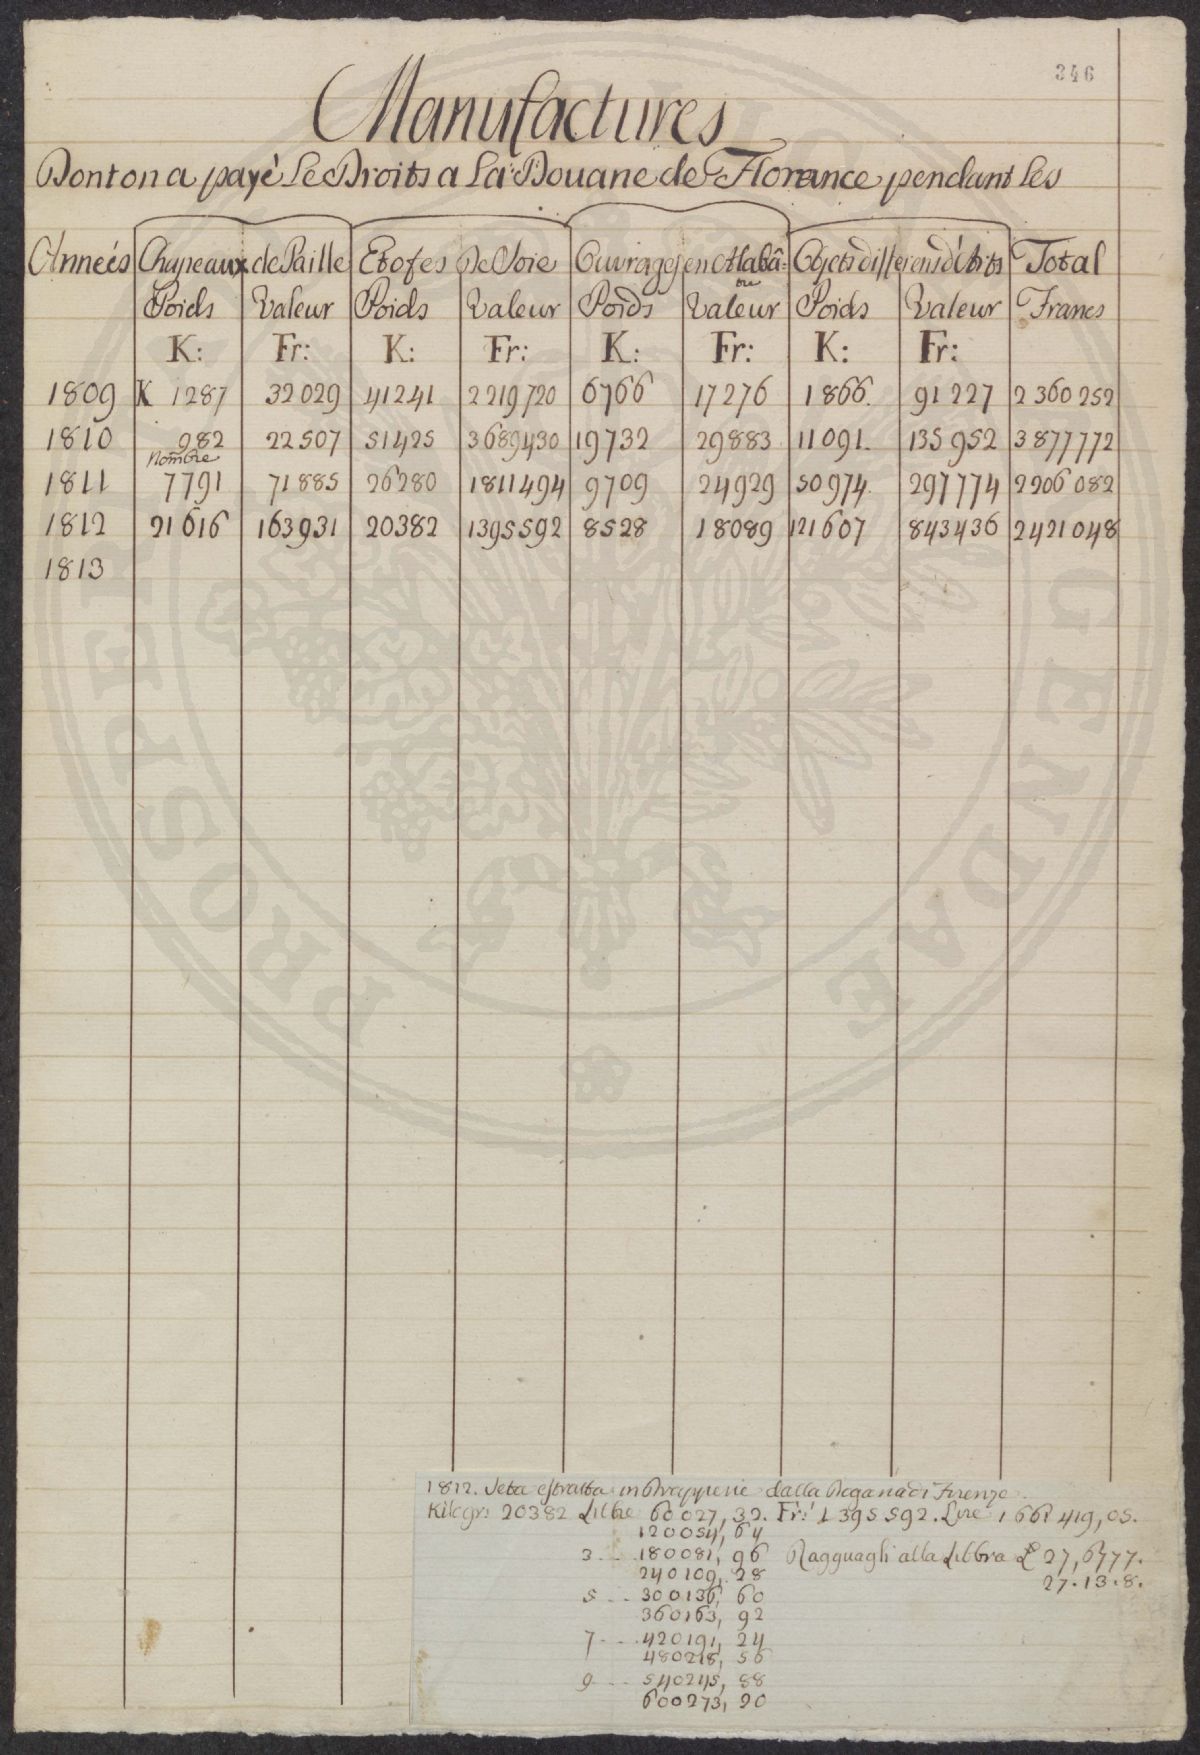 346
Manufactures
Dont on a payé Le Droits a La Douane de Florance pendant les
Années Chapeaux de Paille Etofes De Soie Ouvrages en Alabâ- Objets differens d'Arts Total
tre
Poids Valeur Poids Valeur Poids Valeur Poids Valeur Francs
K: Fr: K: Fr: K: Fr: K: Fr:
1809 K 1287 32029 41241 2219720 6766 17276 1866. 91227 2360252
1810 982 22507 51425 3689430 19732 29883 11091. 135952 3877772
Nombre
1811 7791 71885 26280 1811494 9709 24929 50974. 297774 2206082
1812 21616 163931 20382 1395592 8528 18089 121607 843436 2421048
1813
1812. Seta estratta in Drapperie dalla Dogana di Firenze.
Kilogr: 20382 Libre 60027,32. Fr: 1395592. Lire 1661419,05.
120054, 64
3... 180081, 96 Ragguagli alla Libbra £ 27,6777.
240109, 28 27.13.8.
5... 300136, 60
360163, 92
7... 420191, 24
480218, 56
9... 540245, 88
600273, 20
PROSPERITATI AUGENDAE